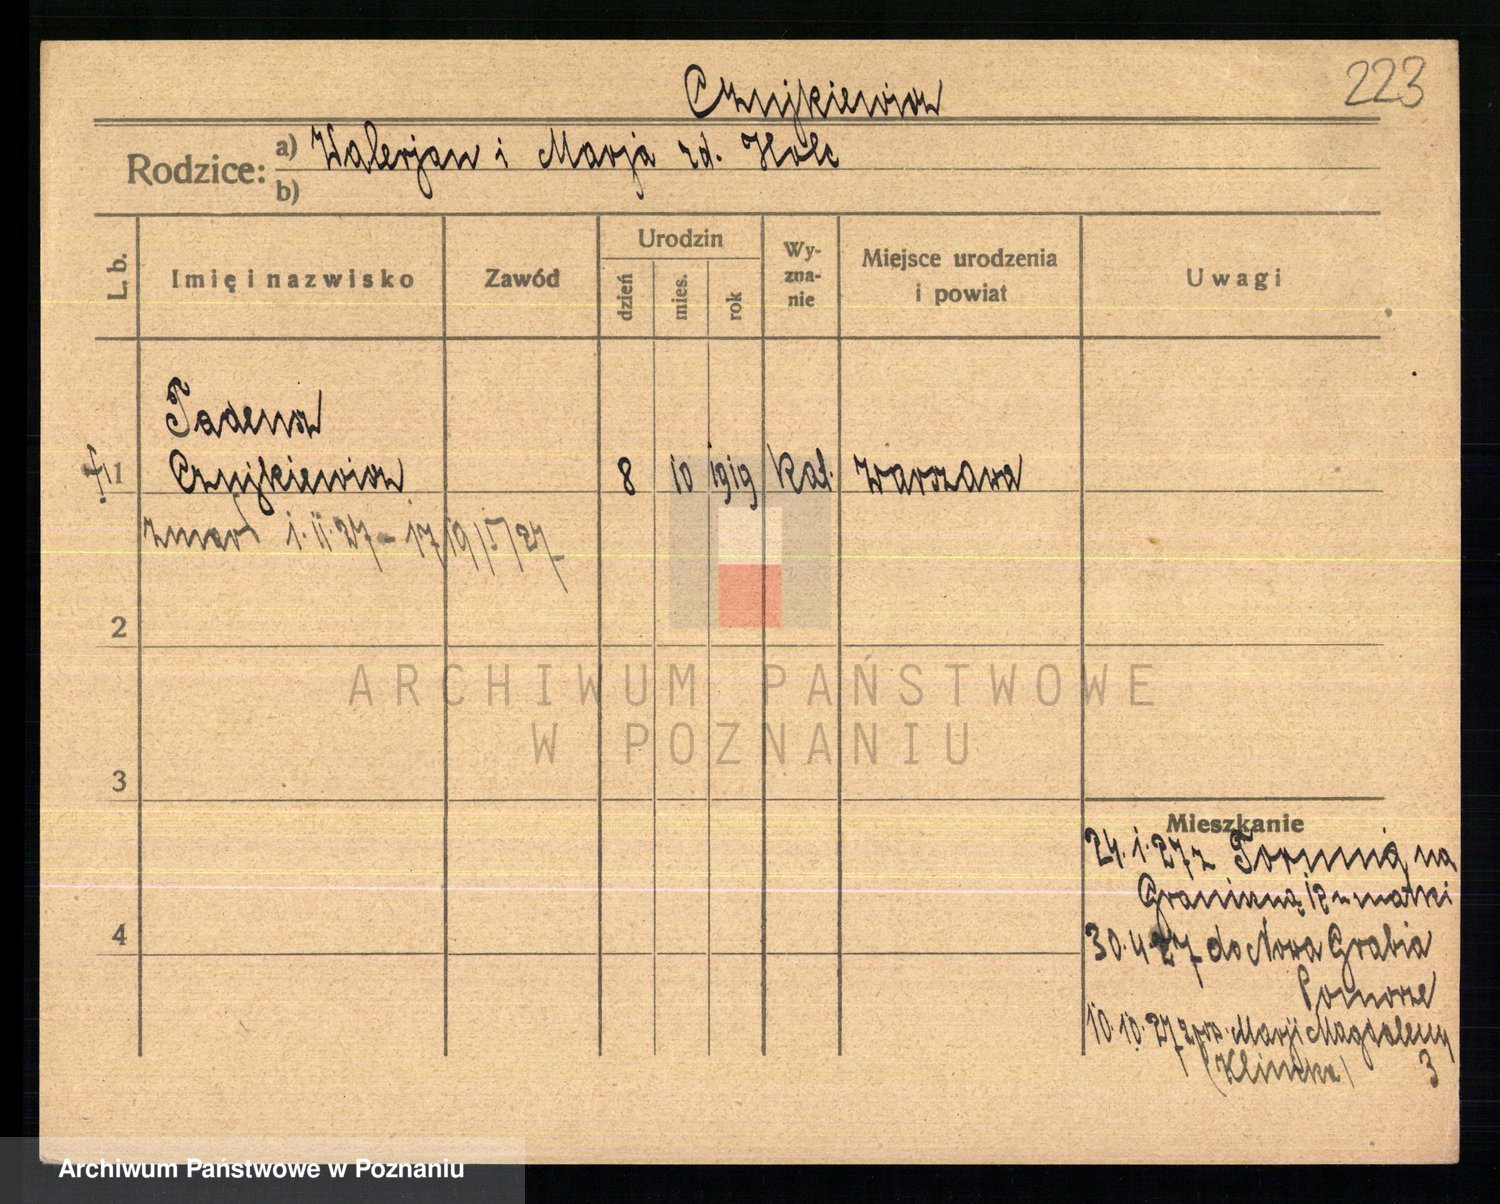 Czujkiewicz
223
Rodzice:
a) Walerjan i Marja zd. Holc
b)
L. b.
Imię i nazwisko
Zawód
Urodzin
dzień
mies.
rok
Wy-
zna-
nie
Miejsce urodzenia
i powiat
Uwagi
Tadeusz
1 Czujkiewicz 8 10 1919 kat. Warszawa
zmarł 1.11.27 - 1719/V/27
2
3
4
ARCHIWUM PAŃSTWOWE
W POZNANIU
Mieszkanie
24.1.27 z Torunia na
Graniczną 12 u matki
30.4.27 do Nowa Grabia
Pomorze
10.10.27 Marji Magdaleny
3
Archiwum Państwowe w Poznaniu